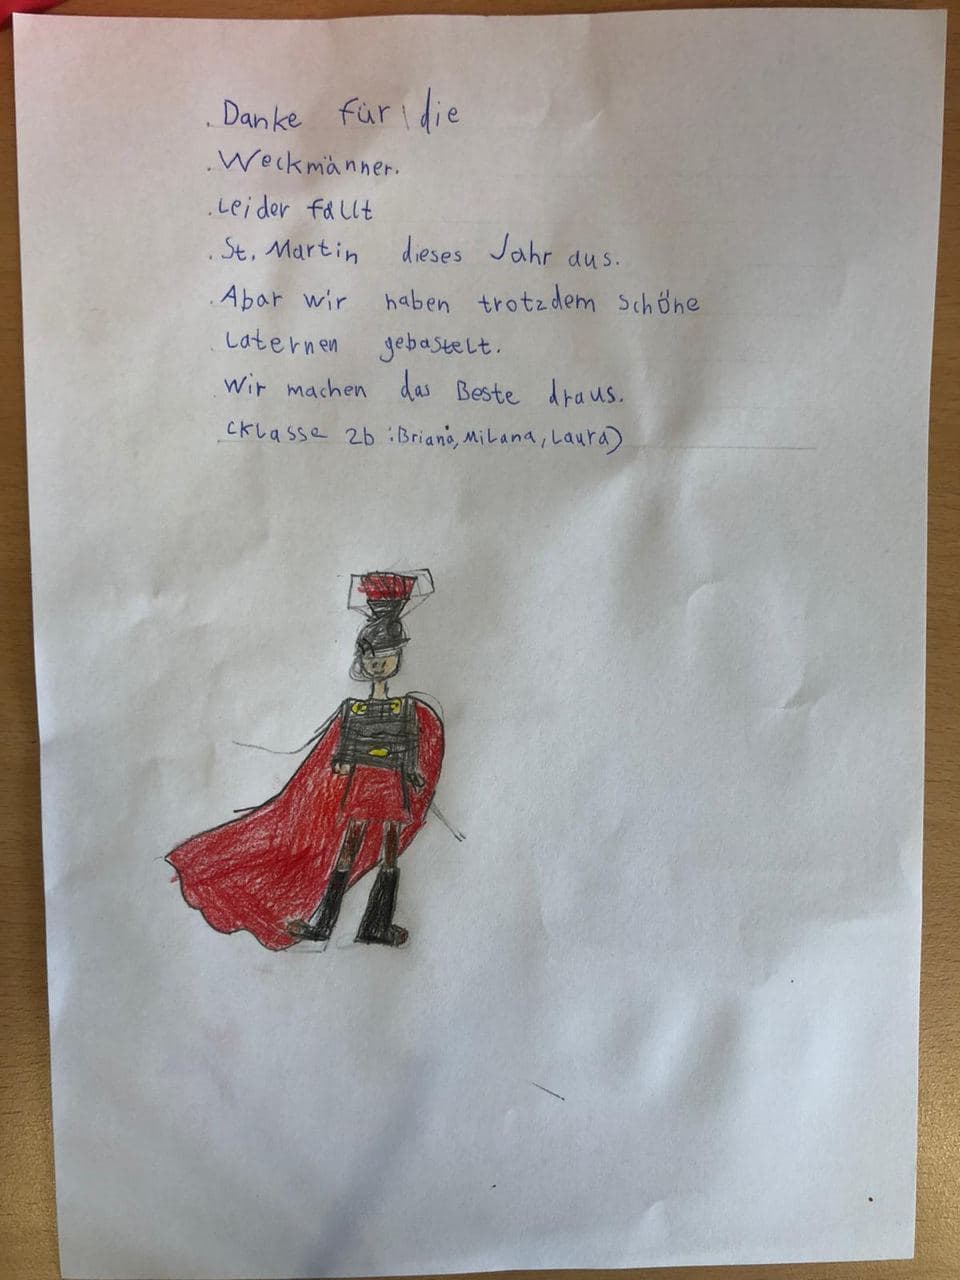 Danke für die
Weckmänner.
Leider fällt
St. Martin dieses Jahr aus.
Abar wir haben trotzdem schöne
Laternen gebastelt.
Wir machen das Beste draus.
(Klasse 2b: Briana, Milana, Laura)